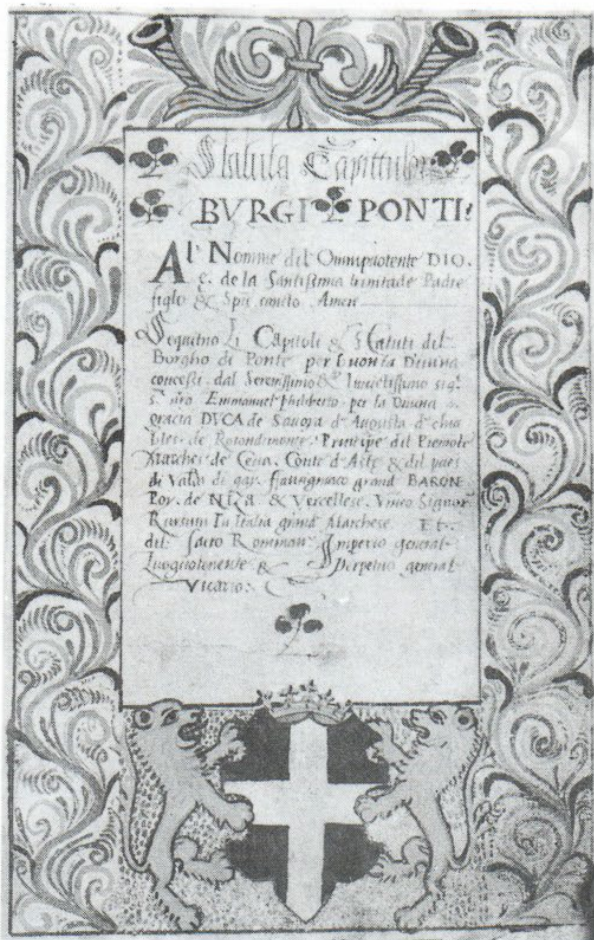 Statuta Capittulor
BVRGI PONTI:
Al Nomme del Omnipotente DIO.
e. de la Santissima trinitade Padre
figlo & Spū sancto Amen
Sequitno Li Capitoli & Statuti del
Borgho di Ponte per buonta Divina
concessi. dal Serenissimo &
Sig.
s. nro Emmanuel philiberto per la Divina
gracia DVCA de Savoya d'Augusta d' chia
bles. de Rotondmonte. Principe del Piemōte
Marchese de Ceva. Conte d'Aste & dil paes
di Vald di gay. grand BARON
de Niza & Vercellese. Signor
In Italia grand Marchese. Et.
del sacro Romman Imperio general
Luoguotenente & Perpetuo general
Vicario.